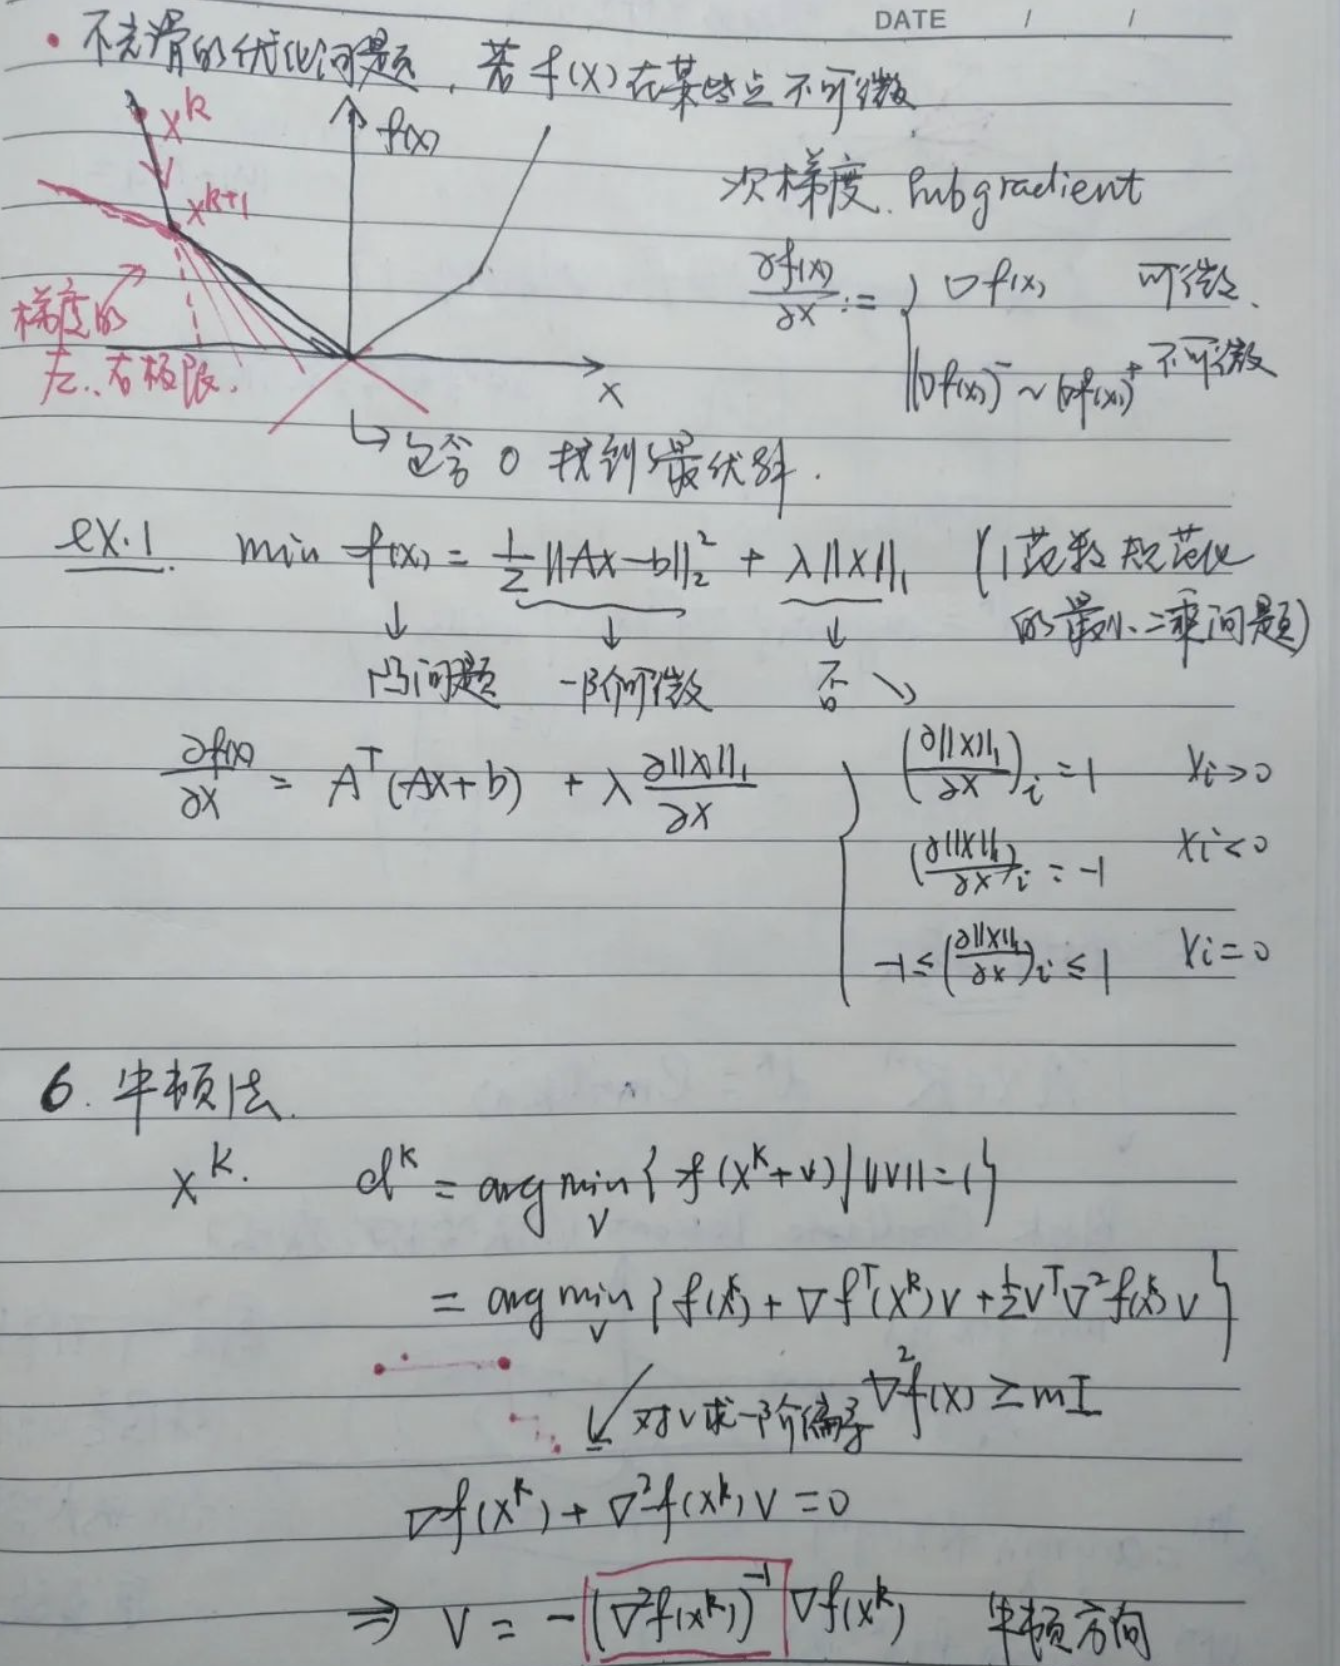 DATE / /
• 不光滑的优化问题，若 f(x) 在某些点不可微
x^k
f(x)
次梯度. Subgradient
x^{k+1}
∂f(x)/∂x := { ∇f(x) 可微.
梯度的
左、右极限.
(∇f(x))^- ~ (∇f(x))^+ 不可微
x
↳ 包含 0 找到最优解.
ex.1. min f(x) = 1/2 ||Ax-b||_2^2 + λ||x||_1 (1范数规范化
的最小二乘问题)
↓ ↓ ↓
凸问题 一阶可微 否 ↘
∂f(x)/∂x = A^T(Ax+b) + λ ∂||x||_1/∂x { (∂||x||_1/∂x)_i = 1 x_i>0
(∂||x||_1/∂x)_i = -1 x_i<0
-1 ≤ (∂||x||_1/∂x)_i ≤ 1 x_i=0
6. 牛顿法.
x^k. d^k = arg min_v { f(x^k+v) | ||v||=1 }
= arg min_v { f(x^k) + ∇f^T(x^k)v + 1/2 v^T ∇²f(x^k) v }
↙ 对v求一阶偏导 ∇²f(x) ≥ mI
∇f(x^k) + ∇²f(x^k)v = 0
⇒ v = -(∇²f(x^k))^{-1} ∇f(x^k) 牛顿方向